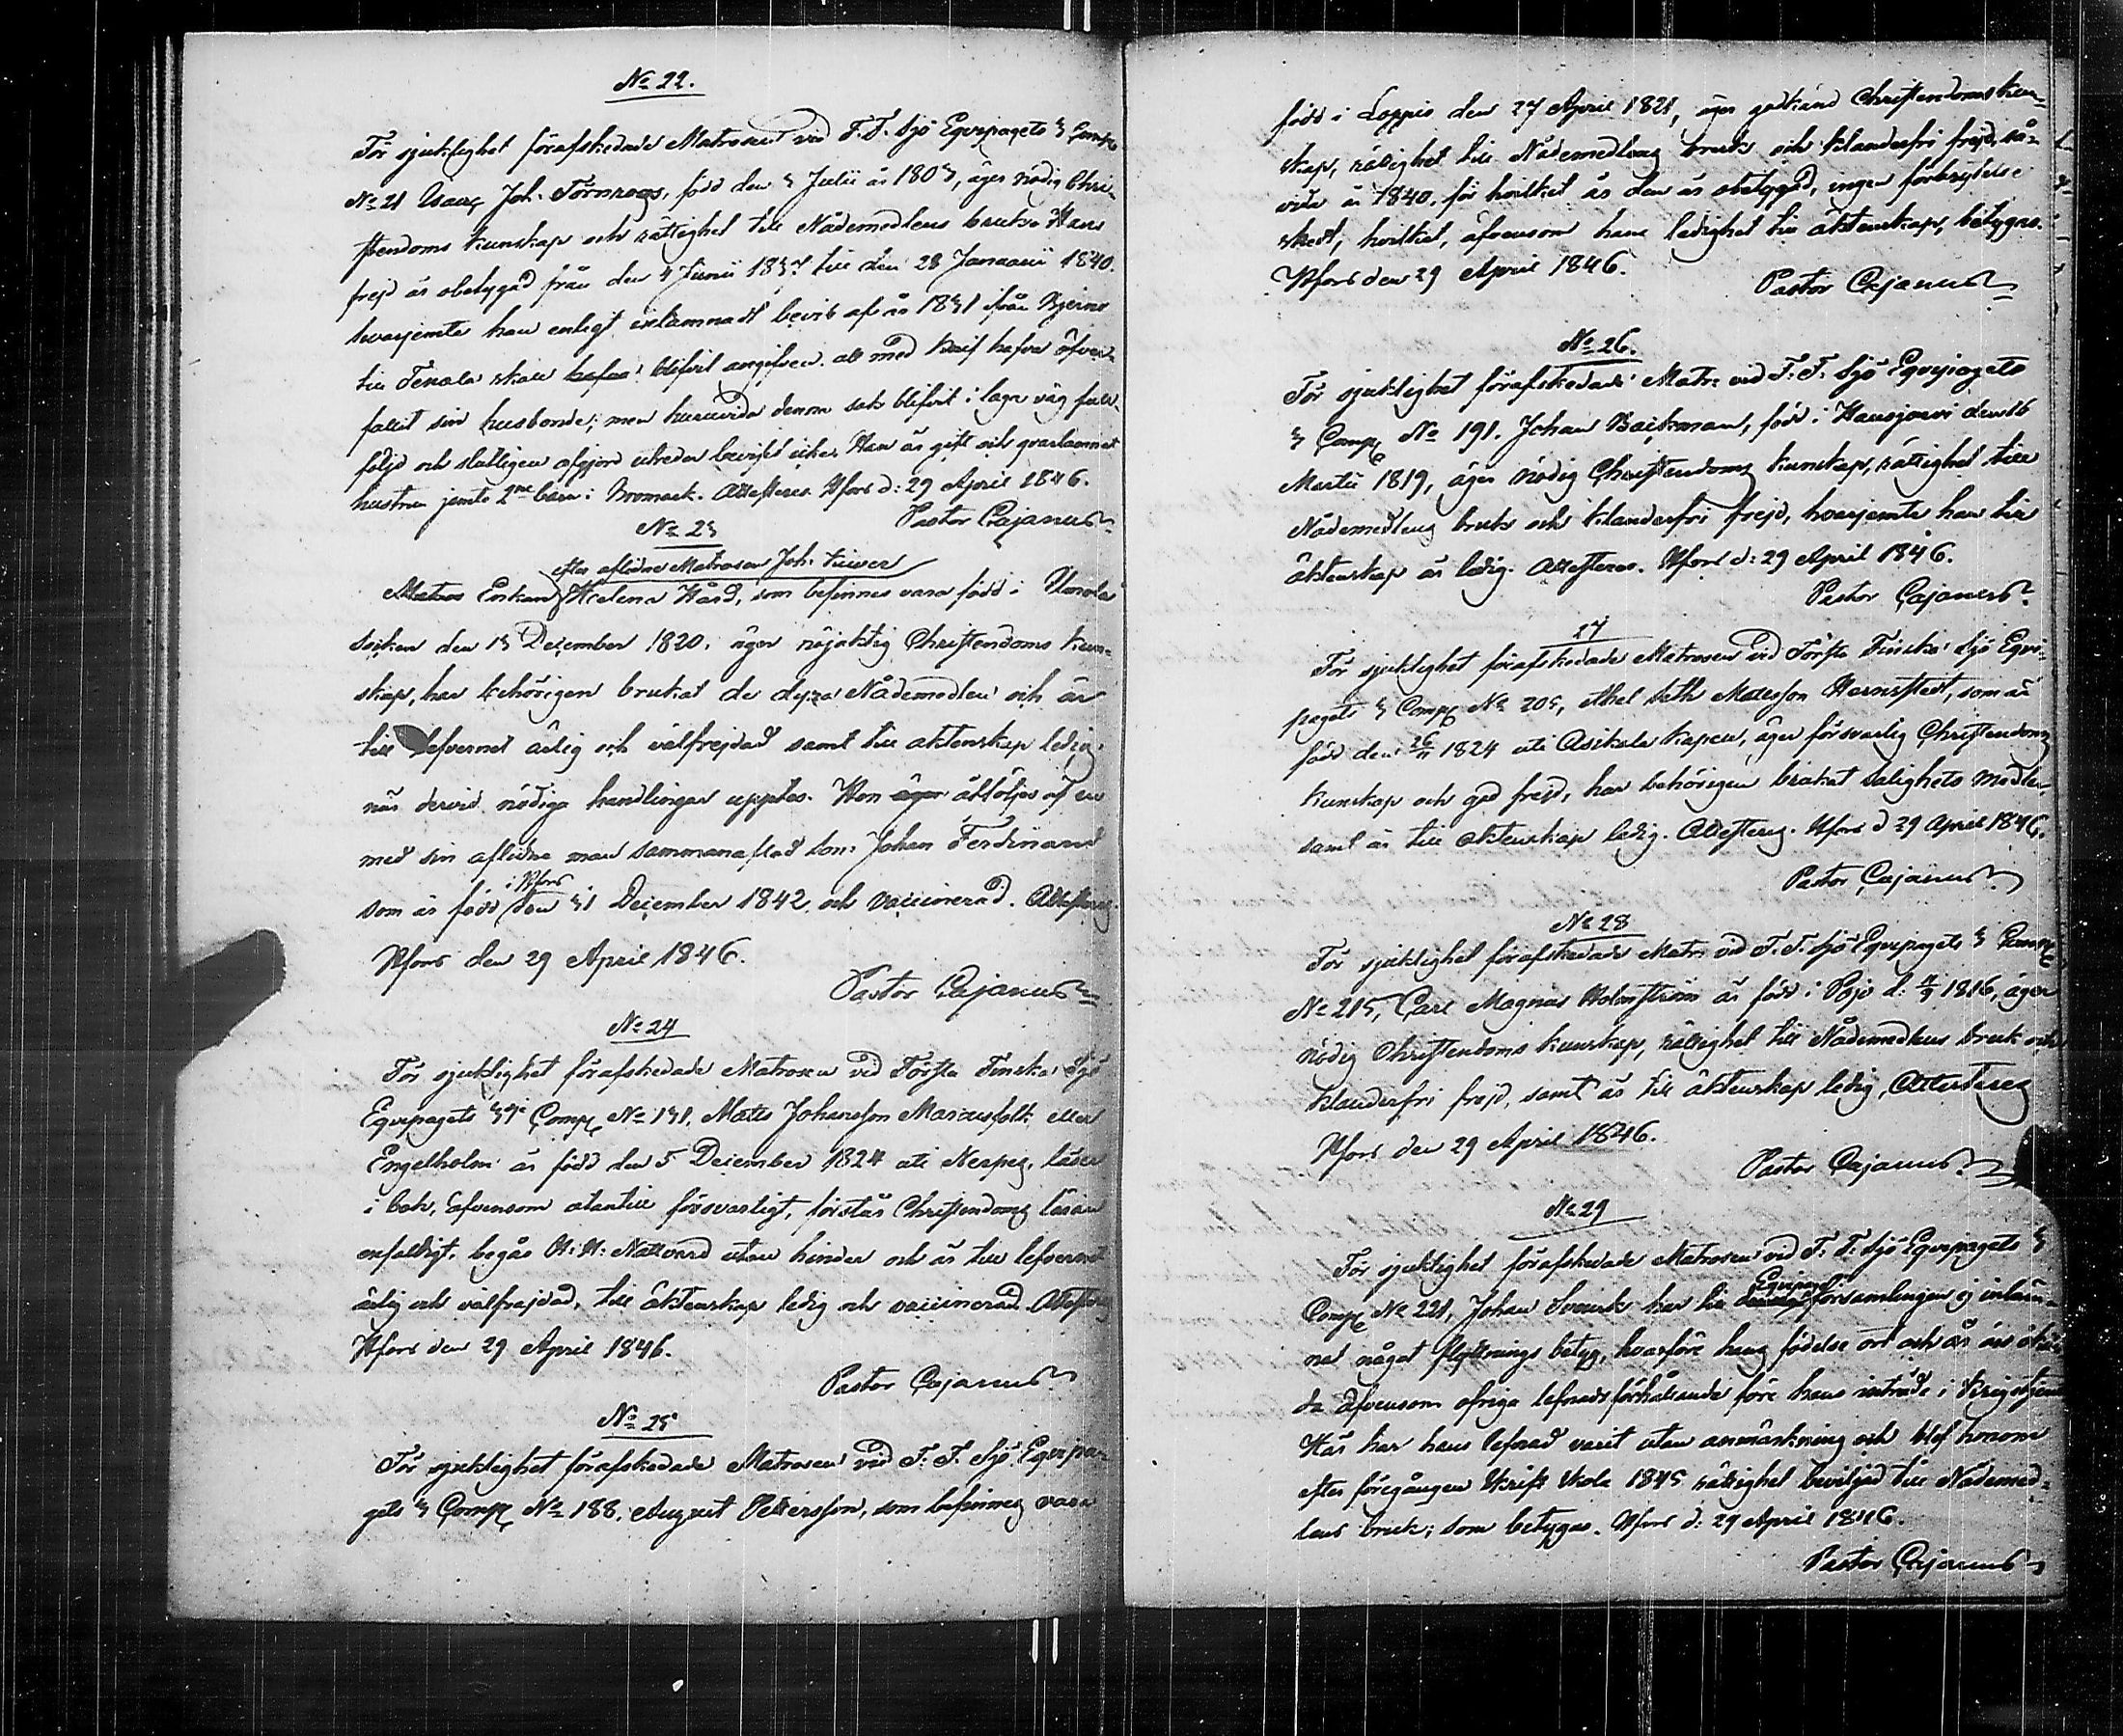 No 22.
För sjuklighet förafskedade Matrosen vid F. F. Sjö Equipagets 3 Comp
No 21 Isaac Joh. Törnroos, född den 3 Julii år 1803, äger nödig Chri-
stendoms kunskap och rättighet till Nådemedlens bruk. Hans
frejd är obetygad från den 4 Junii 1837 till den 28 Januarii 1840.
hvarjemte han enligt inlämnadt bevis af år 1831 ifrån Bjerno
till Tenala skall hafva blifvit angifven att med knif hafva öfver-
fallit sin husbonde; men huruvida denna sak blifvit i laga väg full-
följd och slutligen afgjord utreder beviset icke. Han är gift och qvarlämnat
hustrun jemte 2ne barn i Bromarf. Attesteras Hfors d: 29 April 1846.
Pastor Cajanus
No 23
efter aflidne Matrosen Joh.
Matros Enkan Helena Hård, som befinnes vara född i
Socken den 13 December 1820. äger nöjaktig Christendoms kun-
skap, har behörigen brukat de dyra Nådemedlen och är
till lefvernet ärlig och välfrejdad samt till äktenskap ledig
når dervid nödiga handlingar upptes. Hon äger åtföljes af en
med sin aflidne man sammanaflad son: Johan Ferdinand
i Hfors
som är född den 31 December 1842 och vaccinerad. Attesteras.
Hfors den 29 April 1846.
Pastor Cajanus
No 24
För sjuklighet förafskedade Matrosen vid Första Finska Sjö
Equipagets 3dje Comp No 131. Matts Johansson Marsusfolk eller
Engelholm är född den 5 December 1824 uti Nerpes, läser
i bok, äfvensom utantill försvarligt, förstår Christendoms läran
enfaldigt, begår H: H: Nattvard utan hinder och är till lefvernet
ärlig och välfrejdad, till äktenskap ledig och vaccinerad. Attesteras
Hfors den 29 April 1846.
Pastor Cajanus
No 25
För sjuklighet förafskedade Matrosen vid F. F. Sjö Equipa-
gets 3 Comp No 188. August Pettersson, som befinnes vara
född i Loppis den 27 April 1821, äger godkänd Christendoms kun-
skap, rättighet till Nådemedlens bruk och klanderfri frejd, så-
vida år 1840. för hvilket år den är obetygad, ingen förbrytelse
skedt, hvilket, äfvensom hans ledighet till äktenskap, betygas.
Hfors den 29 April 1846.
Pastor Cajanus
No 26.
För sjuklighet förafskedade Matr. vid F. F. Sjö Equipagets
3 Comp No 191. Johan Backman, född i Hausjärvi den 16
Martii 1819, äger nödig Christendoms kunskap, rättighet till
Nådemedlens bruk och klanderfri frejd, hvarjemte han till
äktenskap är ledig. Attesteras. Hfors d: 29 April 1846.
Pastor Cajanus
27
För sjuklighet förafskedade Matrosen vid Första Finska Sjö Equi-
pagets 3 Comp No 205, Mattsson Hernstedt, som är
född den 26/11 1824 uti Asikkala Kapell, äger försvarlig Christendoms
kunskap och god frejd, har behörigen brukat Salighets medlen,
samt är till äktenskap ledig. Attesteras. Hfors d 29 April 1846.
Pastor Cajanus
No 28
För sjuklighet förafskedade Matr. vid F. F. Sjö Equipagets 3 Comp
No 215, Carl Magnus Holmström är född i Pojo d: 11/9 1816, äger
nödig Christendoms kunskap, rättighet till Nådemedlens bruk och
klanderfri frejd, samt är till äktenskap ledig, Attesteras
Hfors den 29 April 1846.
Pastor Cajanus
No 29
För sjuklighet förafskedade Matrosen vid F. F. Sjö Equipagets 3
Equipage
Comp No 221, Johan har till församlingen ej inläm-
nat något flyttnings betyg, hvarföre hans födelse ort och år äro okän-
da äfvensom öfriga lefnads förhållande före hans inträde i Krigstjenst
Här har hans lefnad varit utan anmärkning och blef honom
efter föregången Skrift Skola 1845 rättighet beviljad till Nådemed-
lens bruk; som betygas. Hfors d: 29 April 1846.
Pastor Cajanus